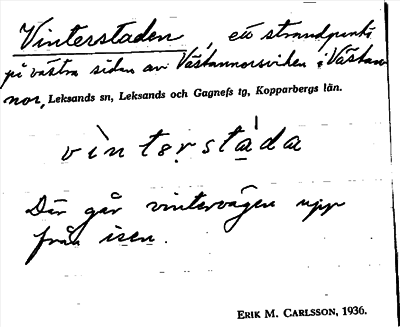 Vinterstaden, ett strandparti
på västra sidan av Västannorsviken i Västan-
nor, Leksands sn, Leksands och Gagnefs tg, Kopparbergs län.
vìntẹrstáda
Där går vintervägen upp
från isen.
ERIK M. CARLSSON, 1936.